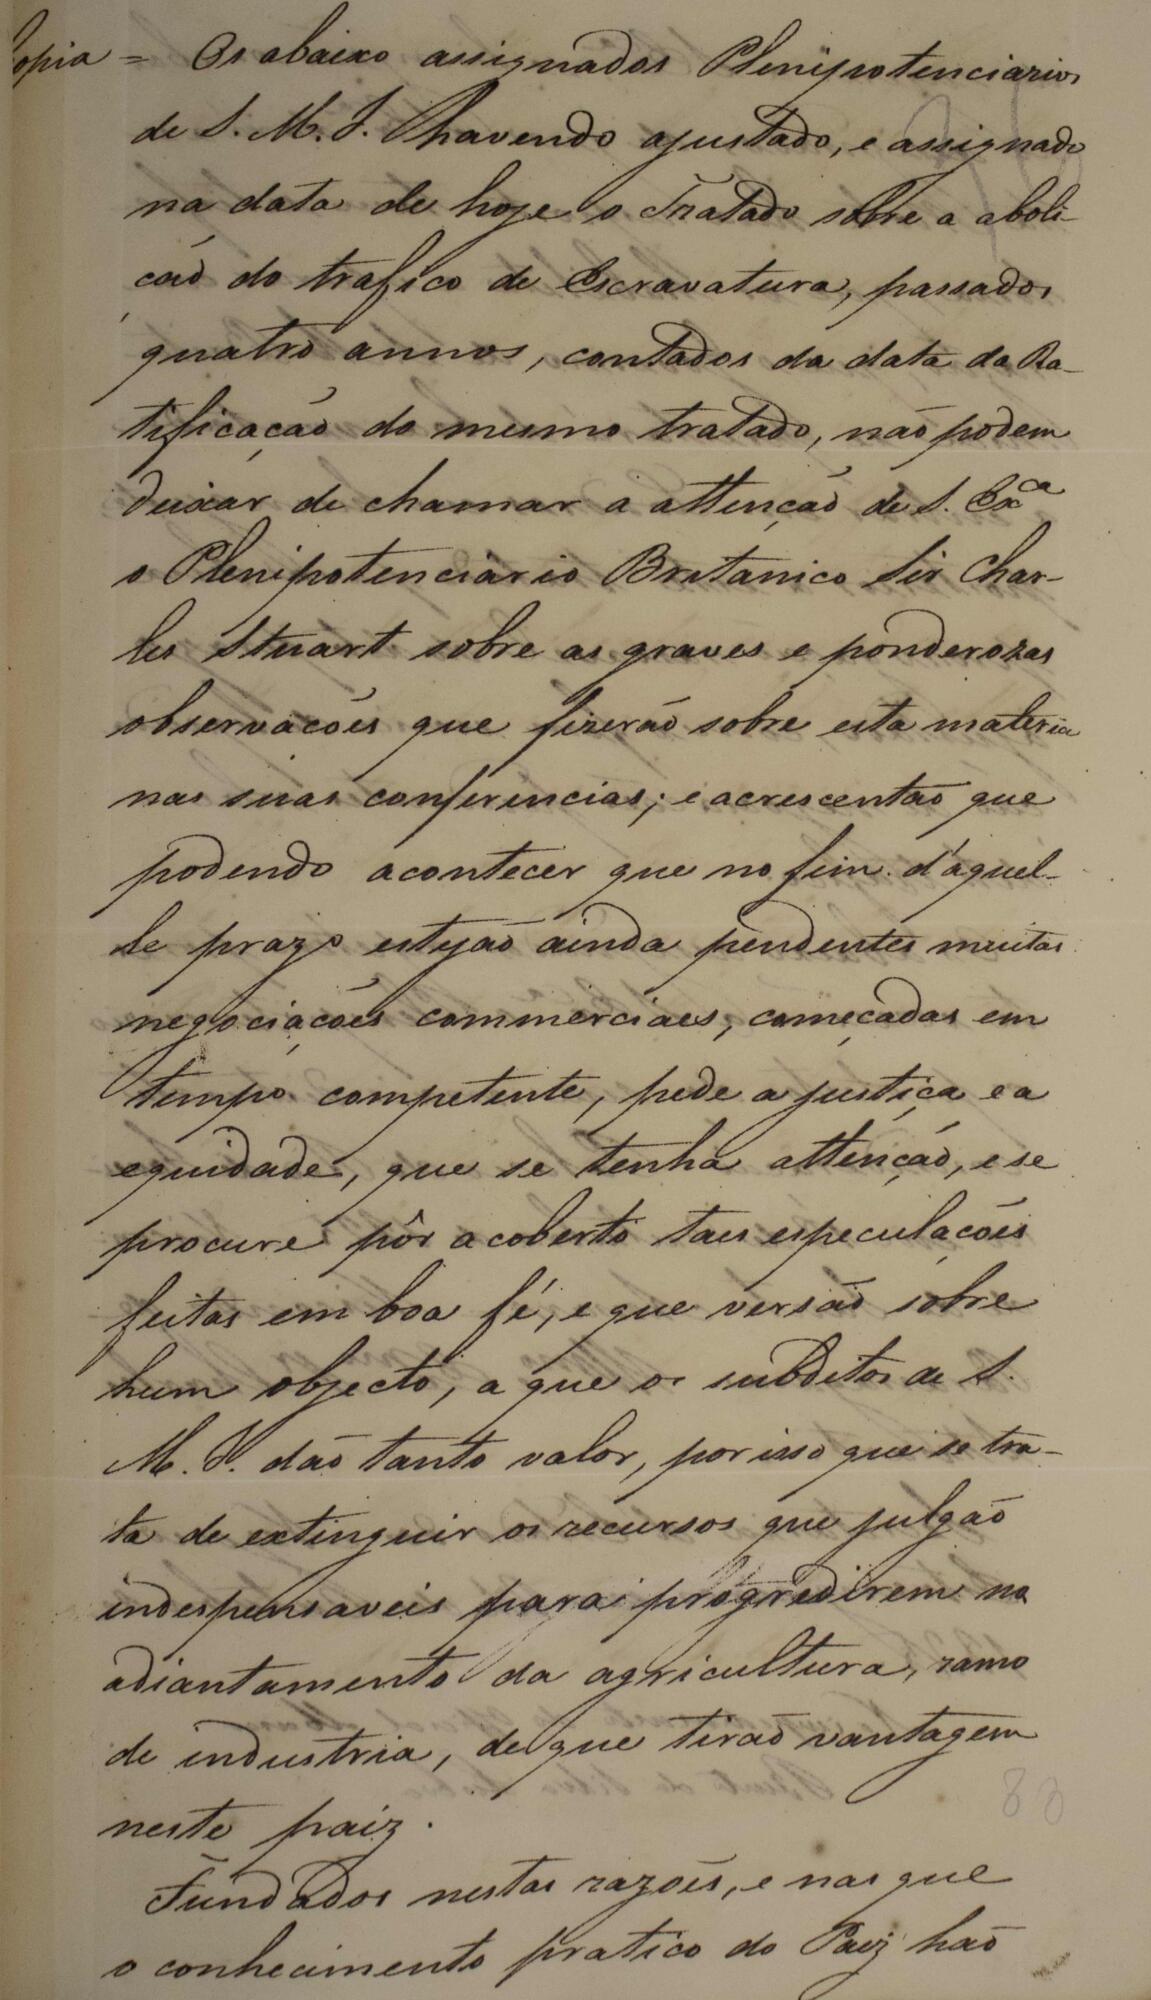 Copia = Os abaixo assignados Plenipotenciarios
de S. M. I. havendo ajustado, e assignado
na data de hoje o Tratado sobre a aboli-
ção do trafico de Escravatura, passados
quatro annos, contados da data da Ra-
tificação do mesmo tratado, não podem
deixar de chamar a attenção de S. Exª
o Plenipotenciario Britanico Sir Char-
les Stuart sobre as graves e ponderozas
observacões que fizerão sobre esta materia
nas suas conferencias; e acrescentão que
podendo acontecer que no fim d'aquel-
le prazo estejão ainda pendentes muitas
negociações commerciaes, começadas em
tempo competente, pede a justiça e a
equidade, que se tenha attenção, e se
procure pôr a coberto taes especulações
feitas em boa fé, e que versão sobre
hum objecto, a que os subditos de S.
M. I. dão tanto valor, por isso que se tra-
ta de extinguir os recursos que julgão
indespensaveis para progredirem no
adiantamento da agricultura, ramo
de industria, de que tirão vantagem
neste paiz.
Fundados nestas razões, e nas que
o conhecimento pratico do Paiz hão
83